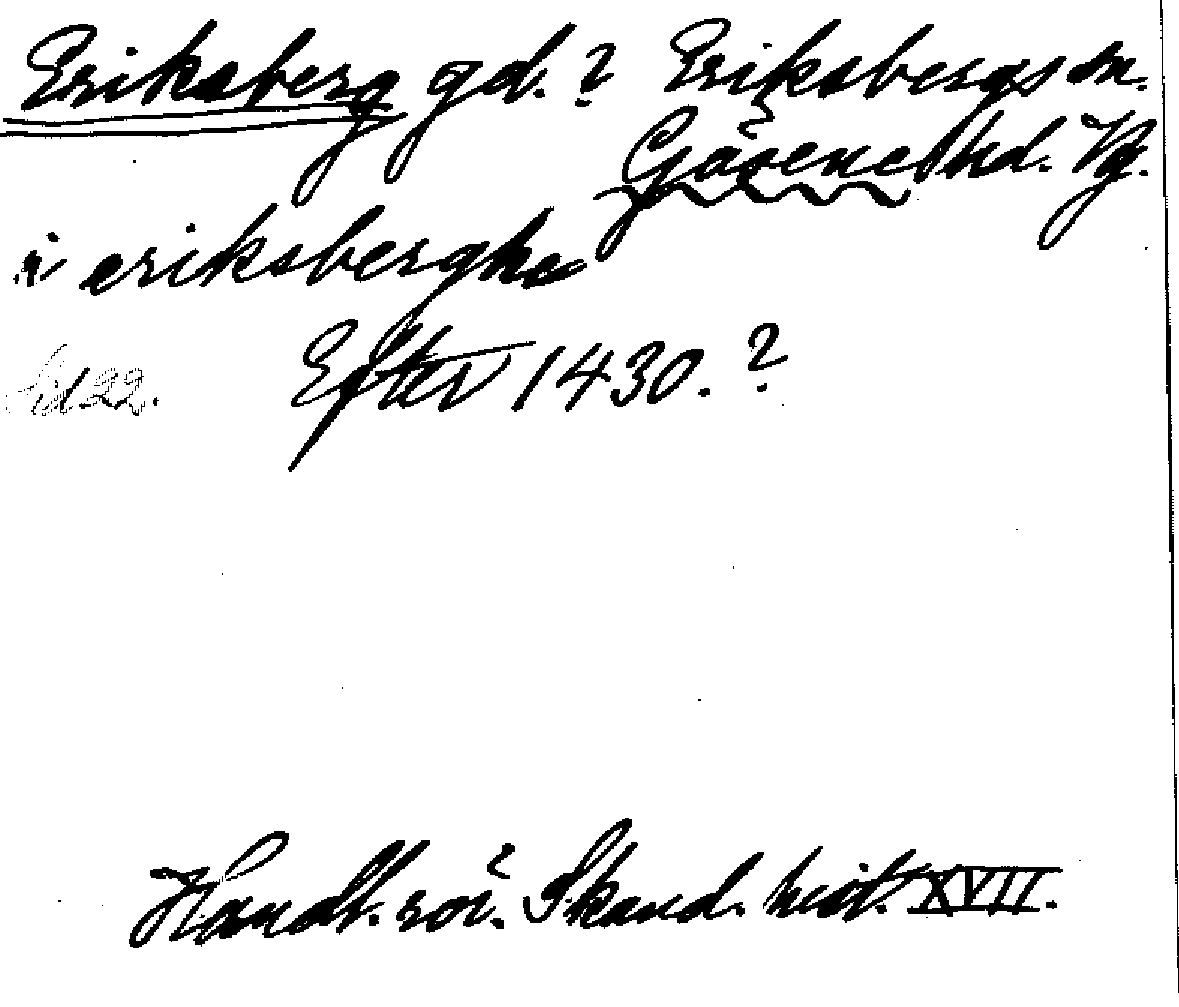 Eriksberg gd.? Eriksbergs sn.
Gäsene hd. Vg.
i eriksberghe
Sid 22. Efter 1430.?
Handl. rör. Skand. hist. XVII.